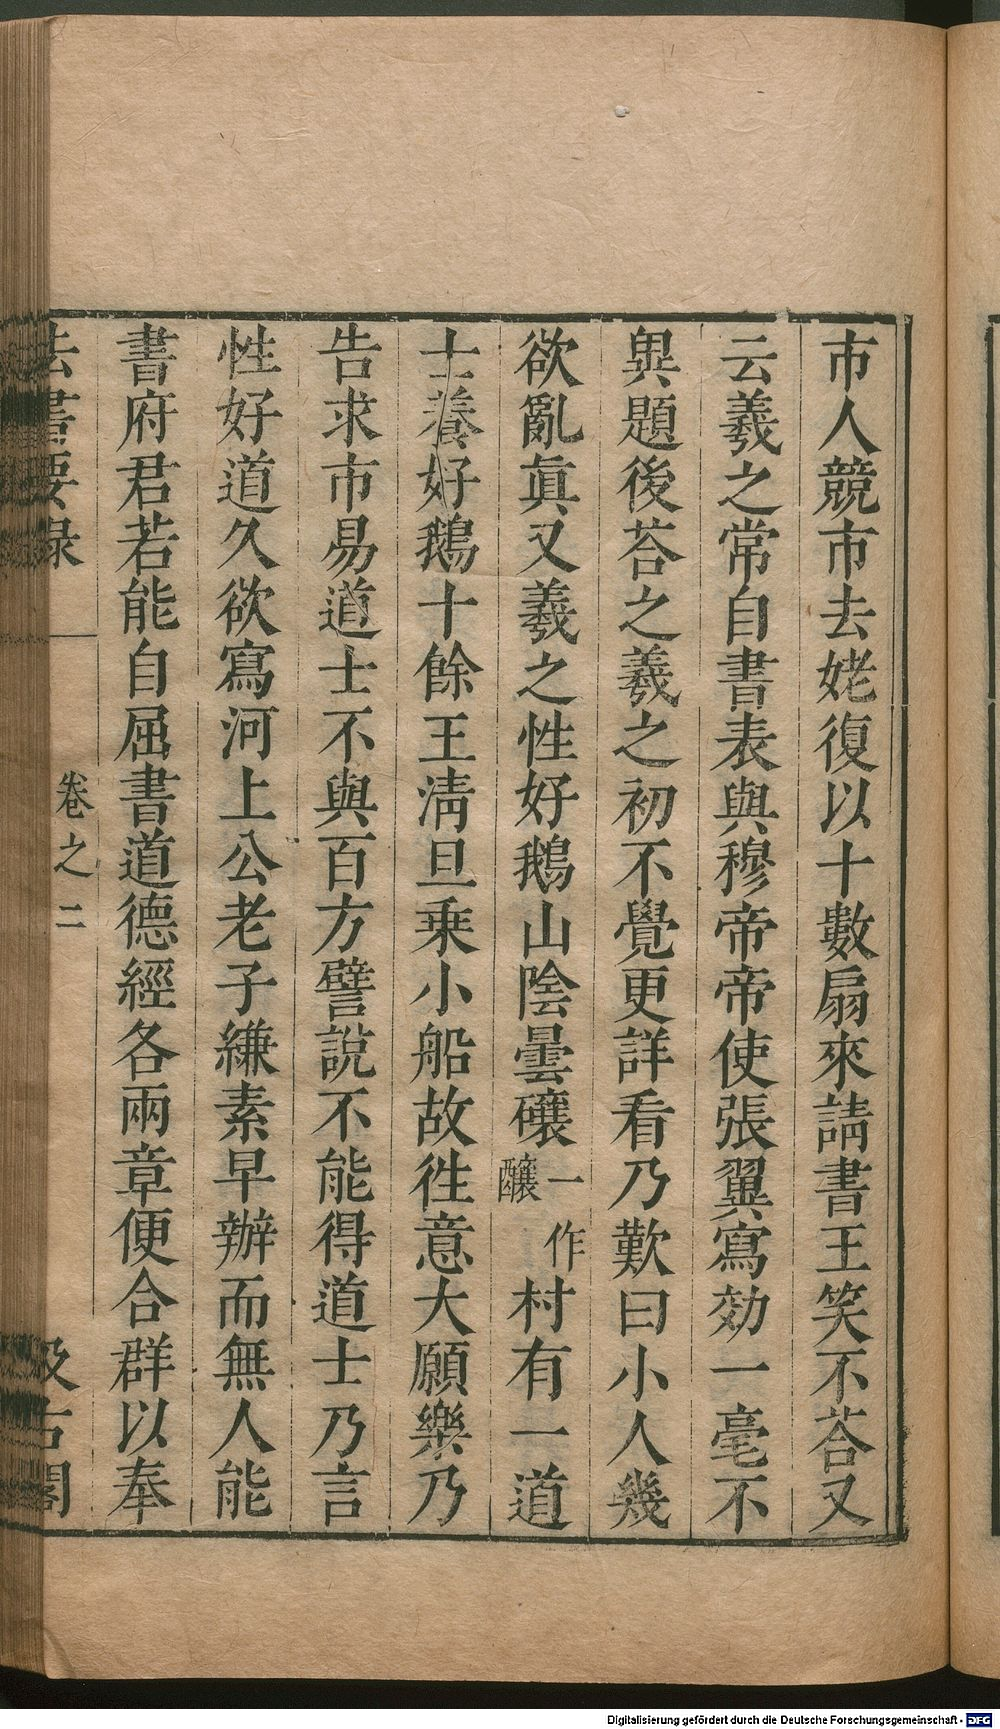 市人競市去姥復以十數扇來請書王笑不荅又
云羲之常自書表與穆帝帝使張翼寫効一毫不
異題後荅之羲之初不覺更詳看乃歎曰小人幾
欲亂眞又羲之性好鵝山陰曇礷一作釀村有一道
士養好鵝十餘王淸旦乗小船故徃意大願樂乃
告求市易道士不與百方譬說不能得道士乃言
性好道久欲寫河上公老子縑素早辦而無人能
書府君若能自屈書道德經各兩章便合群以奉
法書要録 卷之二 汲古閣
Digitalisierung gefördert durch die Deutsche Forschungsgemeinschaft - DFG